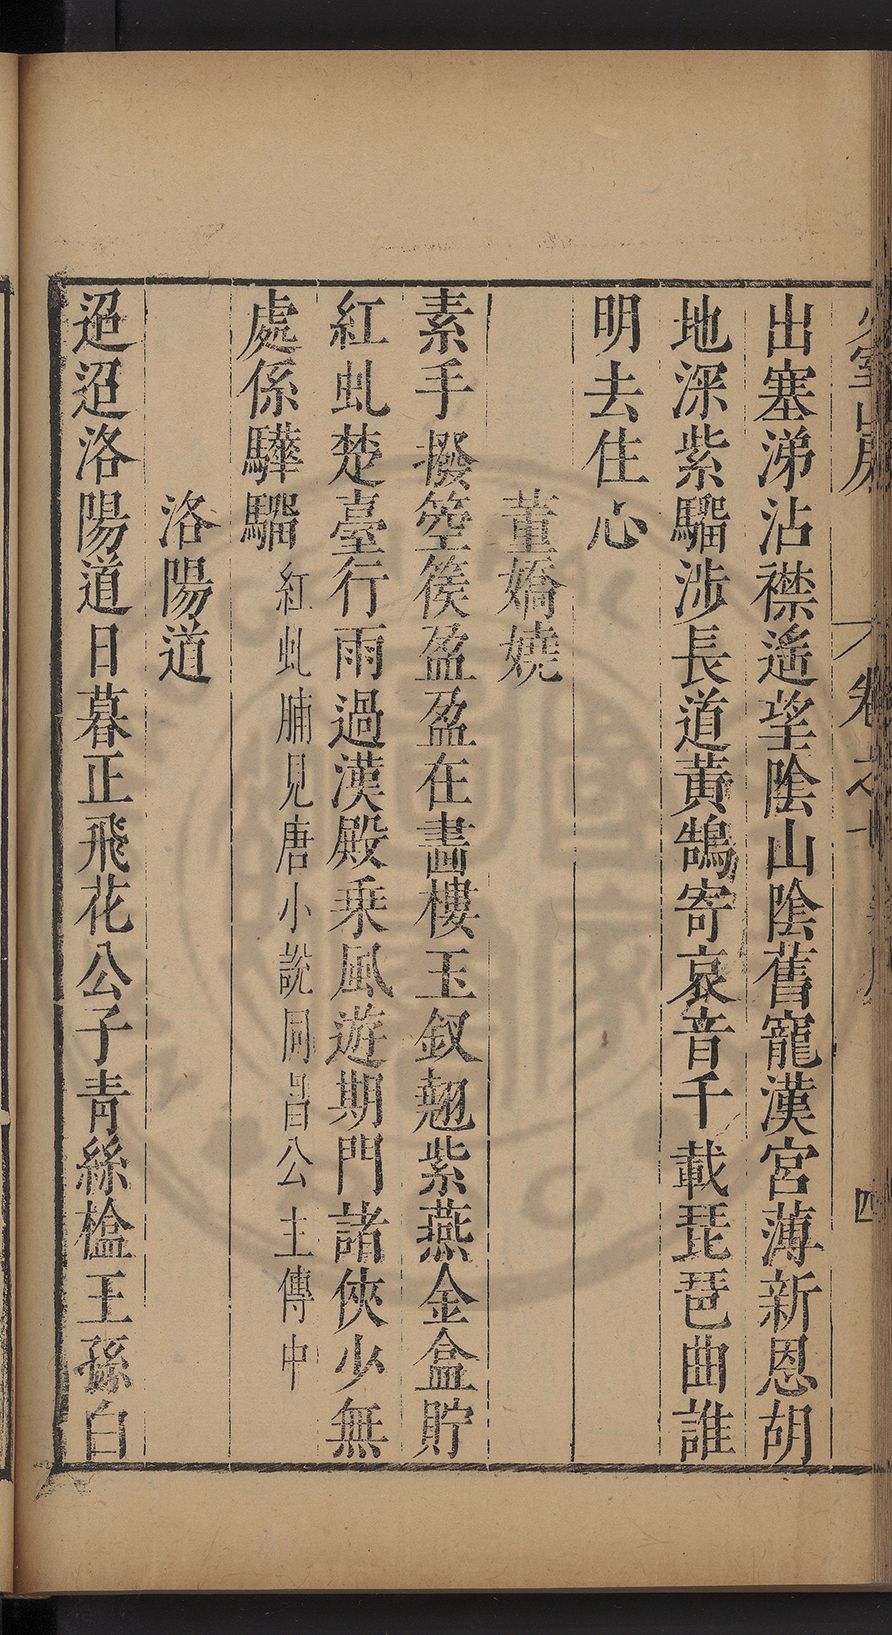 出塞涕沾襟遙望陰山陰舊寵漢宮薄新恩胡
地深紫騮涉長道黃鵠寄哀音千載琵琶曲誰
明去住心
董嬌嬈
素手撥箜篌盈盈在畵樓玉釵翹紫燕金盒貯
紅虬楚臺行雨過漢殿乗風遊期門諸俠少無
處係驊騮紅虬脯見唐小說同昌公主傳中
洛陽道
迢迢洛陽道日暮正飛花公子青絲檻王孫白
卷之十
四